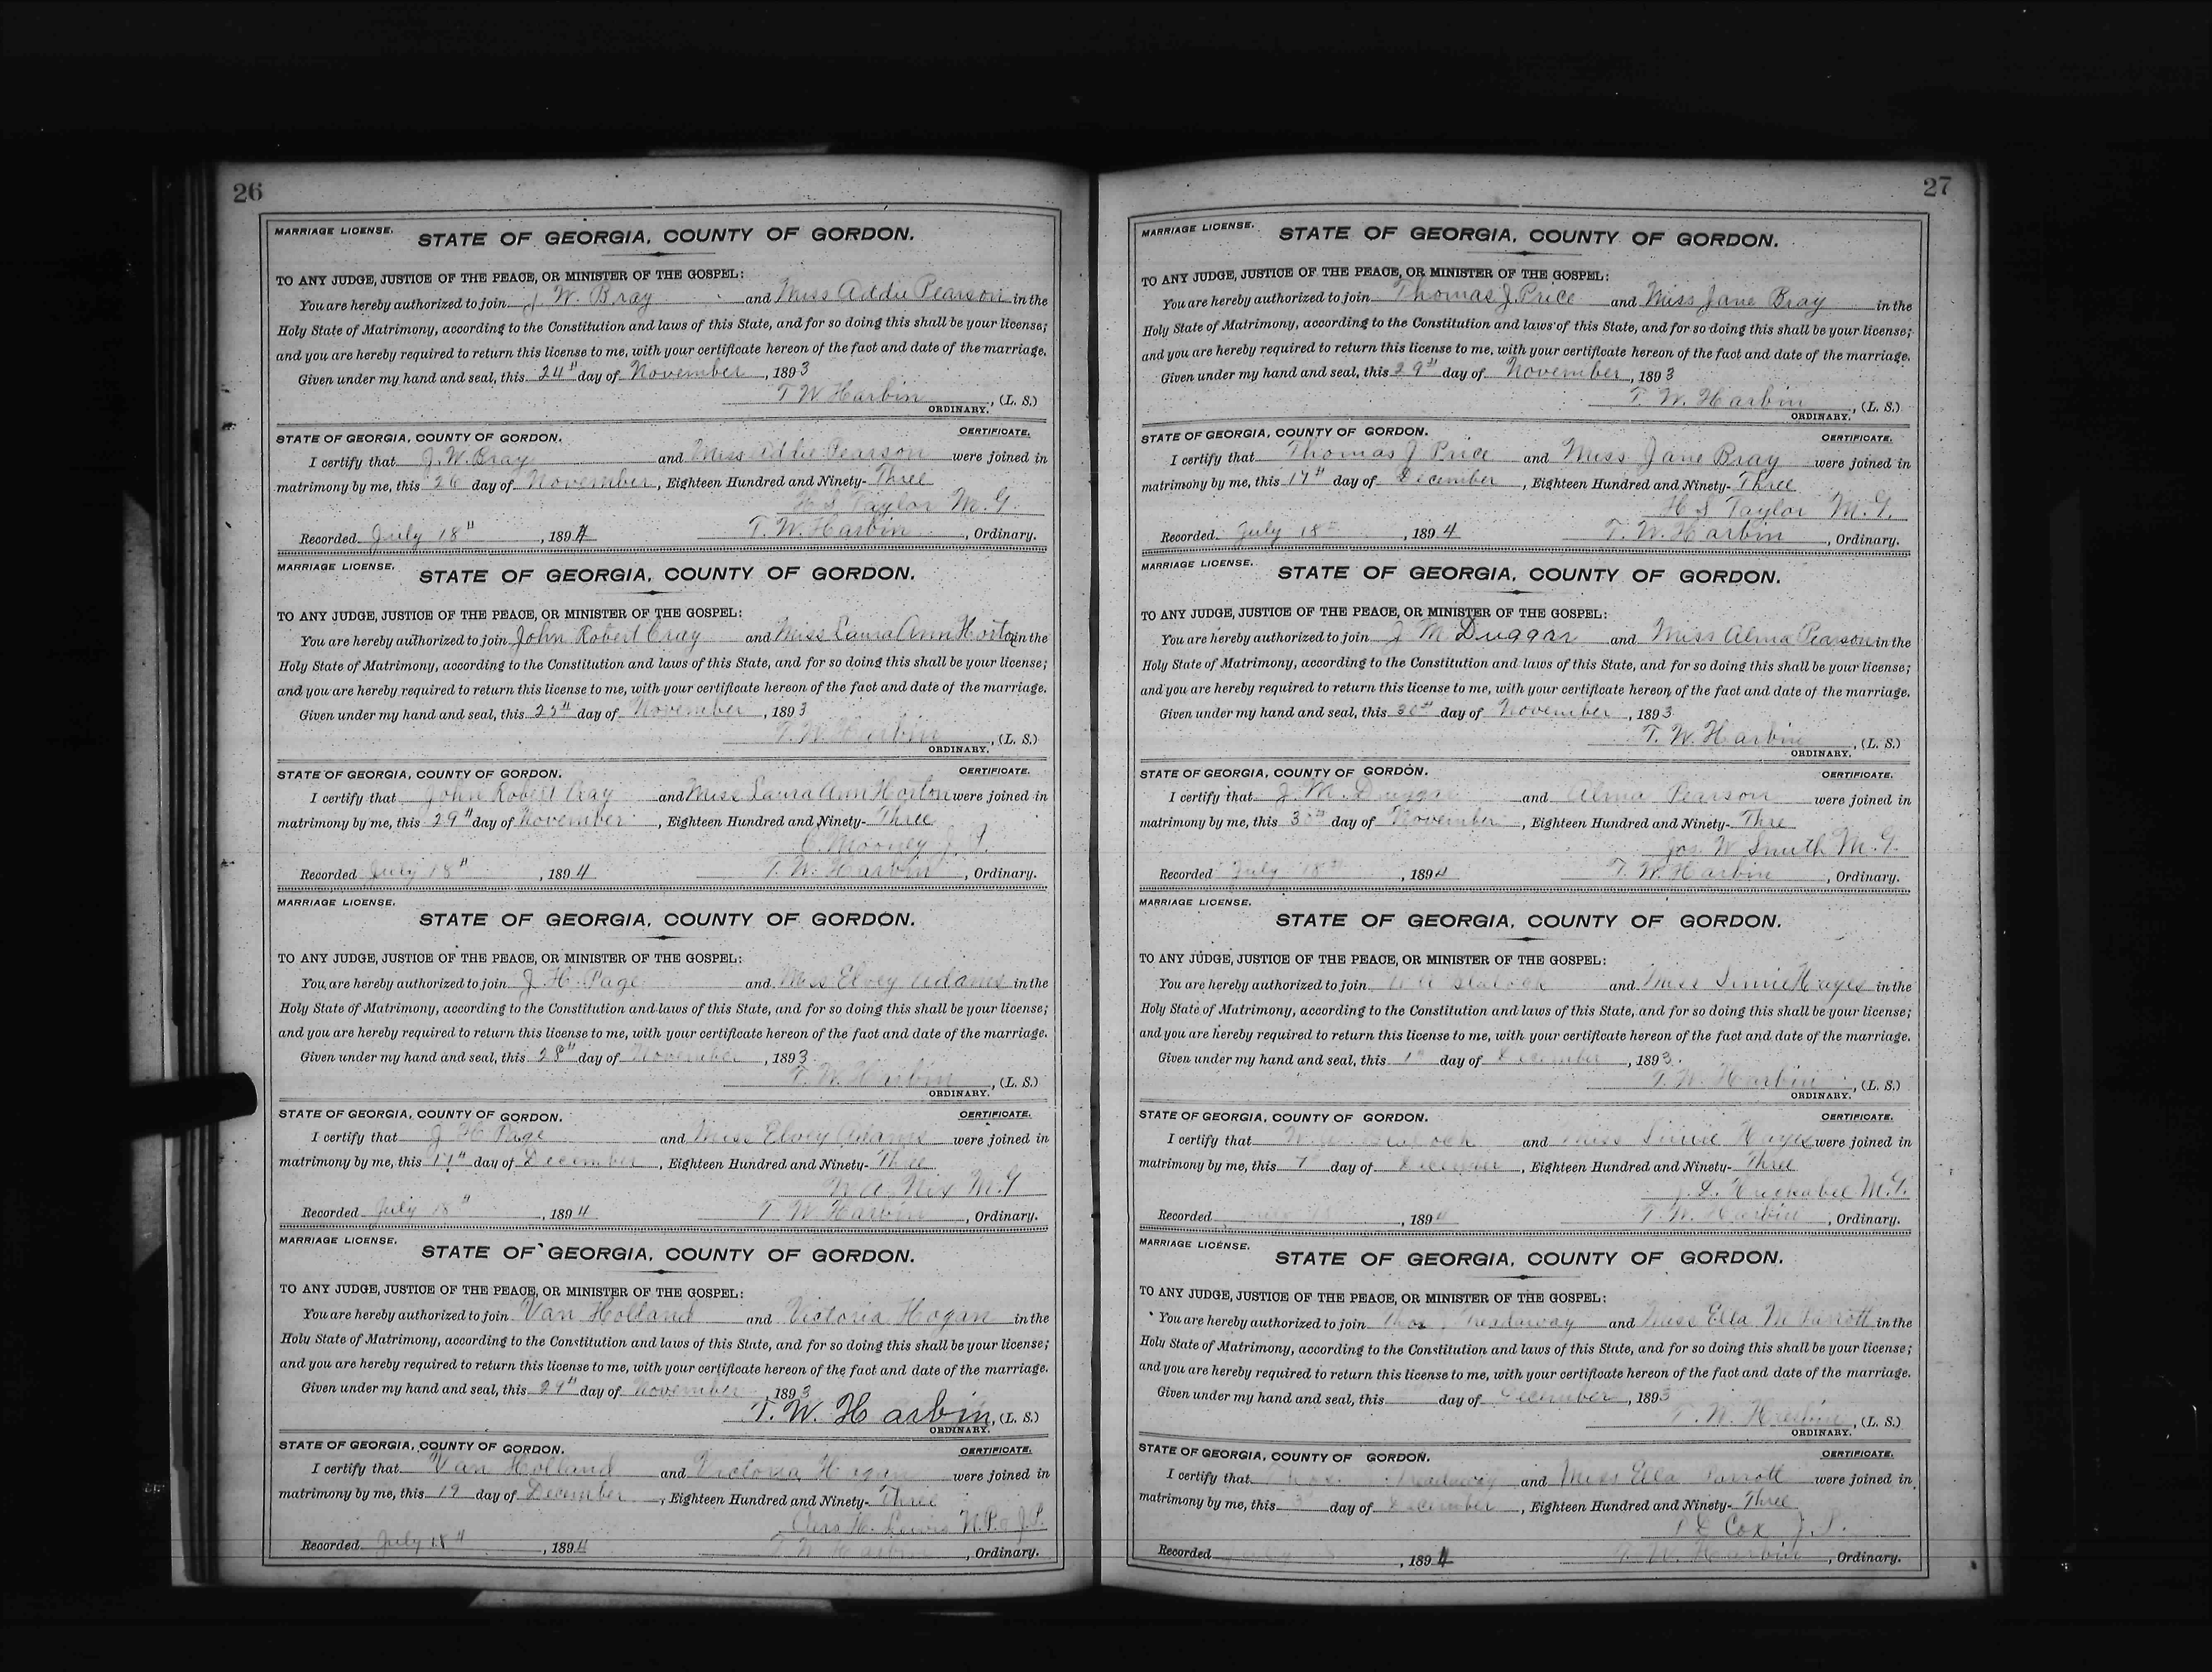 26
MARRIAGE LICENSE.
STATE OF GEORGIA, COUNTY OF GORDON.
TO ANY JUDGE, JUSTICE OF THE PEACE, OR MINISTER OF THE GOSPEL:
You are hereby authorized to join J. W. Bray and Miss Addie Pearson in the
Holy State of Matrimony, according to the Constitution and laws of this State, and for so doing this shall be your license;
and you are hereby required to return this license to me, with your certificate hereon of the fact and date of the marriage.
Given under my hand and seal, this 24th day of November, 1893
T W Harbin, (L. S.)
ORDINARY.
STATE OF GEORGIA, COUNTY OF GORDON. CERTIFICATE.
I certify that J. W. Bray and Miss Addie Pearson were joined in
matrimony by me, this 26 day of November, Eighteen Hundred and Ninety-Three
H S Taylor M. G.
Recorded July 18th, 1894 T. W. Harbin, Ordinary.
MARRIAGE LICENSE.
STATE OF GEORGIA, COUNTY OF GORDON.
TO ANY JUDGE, JUSTICE OF THE PEACE, OR MINISTER OF THE GOSPEL:
You are hereby authorized to join John Robert Cray and Miss Laura Ann Horton in the
Holy State of Matrimony, according to the Constitution and laws of this State, and for so doing this shall be your license;
and you are hereby required to return this license to me, with your certificate hereon of the fact and date of the marriage.
Given under my hand and seal, this day of November, 1893
T. W. Harbin, (L. S.)
ORDINARY.
STATE OF GEORGIA, COUNTY OF GORDON. CERTIFICATE.
I certify that John Robert Cray and Miss Laura Ann Horton were joined in
matrimony by me, this 29th day of November, Eighteen Hundred and Ninety-Three
C. Mooney J. P.
Recorded July 18th, 1894 T. W. Harbin, Ordinary.
MARRIAGE LICENSE.
STATE OF GEORGIA, COUNTY OF GORDON.
TO ANY JUDGE, JUSTICE OF THE PEACE, OR MINISTER OF THE GOSPEL:
You are hereby authorized to join J. H. Page and Miss Elvey Adams in the
Holy State of Matrimony, according to the Constitution and laws of this State, and for so doing this shall be your license;
and you are hereby required to return this license to me, with your certificate hereon of the fact and date of the marriage.
Given under my hand and seal, this 28th day of November, 1893
T. W. Harbin, (L. S.)
ORDINARY.
STATE OF GEORGIA, COUNTY OF GORDON. CERTIFICATE.
I certify that J H Page and Miss Elvey Adams were joined in
matrimony by me, this 17th day of December, Eighteen Hundred and Ninety-Three
W. A. Nix M. G
Recorded July 18th, 1894 T W Harbin, Ordinary.
MARRIAGE LICENSE.
STATE OF GEORGIA, COUNTY OF GORDON.
TO ANY JUDGE, JUSTICE OF THE PEACE, OR MINISTER OF THE GOSPEL:
You are hereby authorized to join Van Holland and Victoria Hogan in the
Holy State of Matrimony, according to the Constitution and laws of this State, and for so doing this shall be your license;
and you are hereby required to return this license to me, with your certificate hereon of the fact and date of the marriage.
Given under my hand and seal, this 29th day of November, 1893
T. W. Harbin, (L. S.)
ORDINARY.
STATE OF GEORGIA, COUNTY OF GORDON. CERTIFICATE.
I certify that Van Holland and Victoria Hogan were joined in
matrimony by me, this 19 day of December, Eighteen Hundred and Ninety-Three
H. Lewis N.P. J.P.
Recorded July 18th, 1894 T W Harbin, Ordinary.
27
MARRIAGE LICENSE.
STATE OF GEORGIA, COUNTY OF GORDON.
TO ANY JUDGE, JUSTICE OF THE PEACE, OR MINISTER OF THE GOSPEL:
You are hereby authorized to join Thomas J. Price and Miss Jane Bray in the
Holy State of Matrimony, according to the Constitution and laws of this State, and for so doing this shall be your license;
and you are hereby required to return this license to me, with your certificate hereon of the fact and date of the marriage.
Given under my hand and seal, this 29th day of November, 1893
T. W. Harbin, (L. S.)
ORDINARY.
STATE OF GEORGIA, COUNTY OF GORDON. CERTIFICATE.
I certify that Thomas J Price and Miss Jane Bray were joined in
matrimony by me, this 17th day of December, Eighteen Hundred and Ninety-Three
H S Taylor M. G.
Recorded July 18th, 1894 T. W. Harbin, Ordinary.
MARRIAGE LICENSE.
STATE OF GEORGIA, COUNTY OF GORDON.
TO ANY JUDGE, JUSTICE OF THE PEACE, OR MINISTER OF THE GOSPEL:
You are hereby authorized to join J M Duggar and Miss Alma Pearson in the
Holy State of Matrimony, according to the Constitution and laws of this State, and for so doing this shall be your license;
and you are hereby required to return this license to me, with your certificate hereon of the fact and date of the marriage.
Given under my hand and seal, this 30th day of November, 1893
T. W. Harbin, (L. S.)
ORDINARY.
STATE OF GEORGIA, COUNTY OF GORDON. CERTIFICATE.
I certify that J. M. Duggar and Alma Pearson were joined in
matrimony by me, this 30th day of November, Eighteen Hundred and Ninety-Thre
Jos. W Smith M. G.
Recorded July 18th, 1894 T. W. Harbin, Ordinary.
MARRIAGE LICENSE.
STATE OF GEORGIA, COUNTY OF GORDON.
TO ANY JUDGE, JUSTICE OF THE PEACE, OR MINISTER OF THE GOSPEL:
You are hereby authorized to join Blalock and Miss Hayes in the
Holy State of Matrimony, according to the Constitution and laws of this State, and for so doing this shall be your license;
and you are hereby required to return this license to me, with your certificate hereon of the fact and date of the marriage.
Given under my hand and seal, this 1st day of December, 1893.
T. W. Harbin, (L. S.)
ORDINARY.
STATE OF GEORGIA, COUNTY OF GORDON. CERTIFICATE.
I certify that Blalock and Miss Hayes were joined in
matrimony by me, this 7th day of December, Eighteen Hundred and Ninety-Three
J. L. Huckabee M. G.
Recorded July 18, 1894 T. W. Harbin, Ordinary.
MARRIAGE LICENSE.
STATE OF GEORGIA, COUNTY OF GORDON.
TO ANY JUDGE, JUSTICE OF THE PEACE, OR MINISTER OF THE GOSPEL:
You are hereby authorized to join Thos J Treadaway and Miss Ella M Parrott in the
Holy State of Matrimony, according to the Constitution and laws of this State, and for so doing this shall be your license;
and you are hereby required to return this license to me, with your certificate hereon of the fact and date of the marriage.
Given under my hand and seal, this day of December, 1893
T. W. Harbin, (L. S.)
ORDINARY.
STATE OF GEORGIA, COUNTY OF GORDON. CERTIFICATE.
I certify that Thos. Treadaway and Miss Ella Parrott were joined in
matrimony by me, this 3 day of December, Eighteen Hundred and Ninety-Three
Cox J. P.
Recorded, 1894 T. W. Harbin, Ordinary.